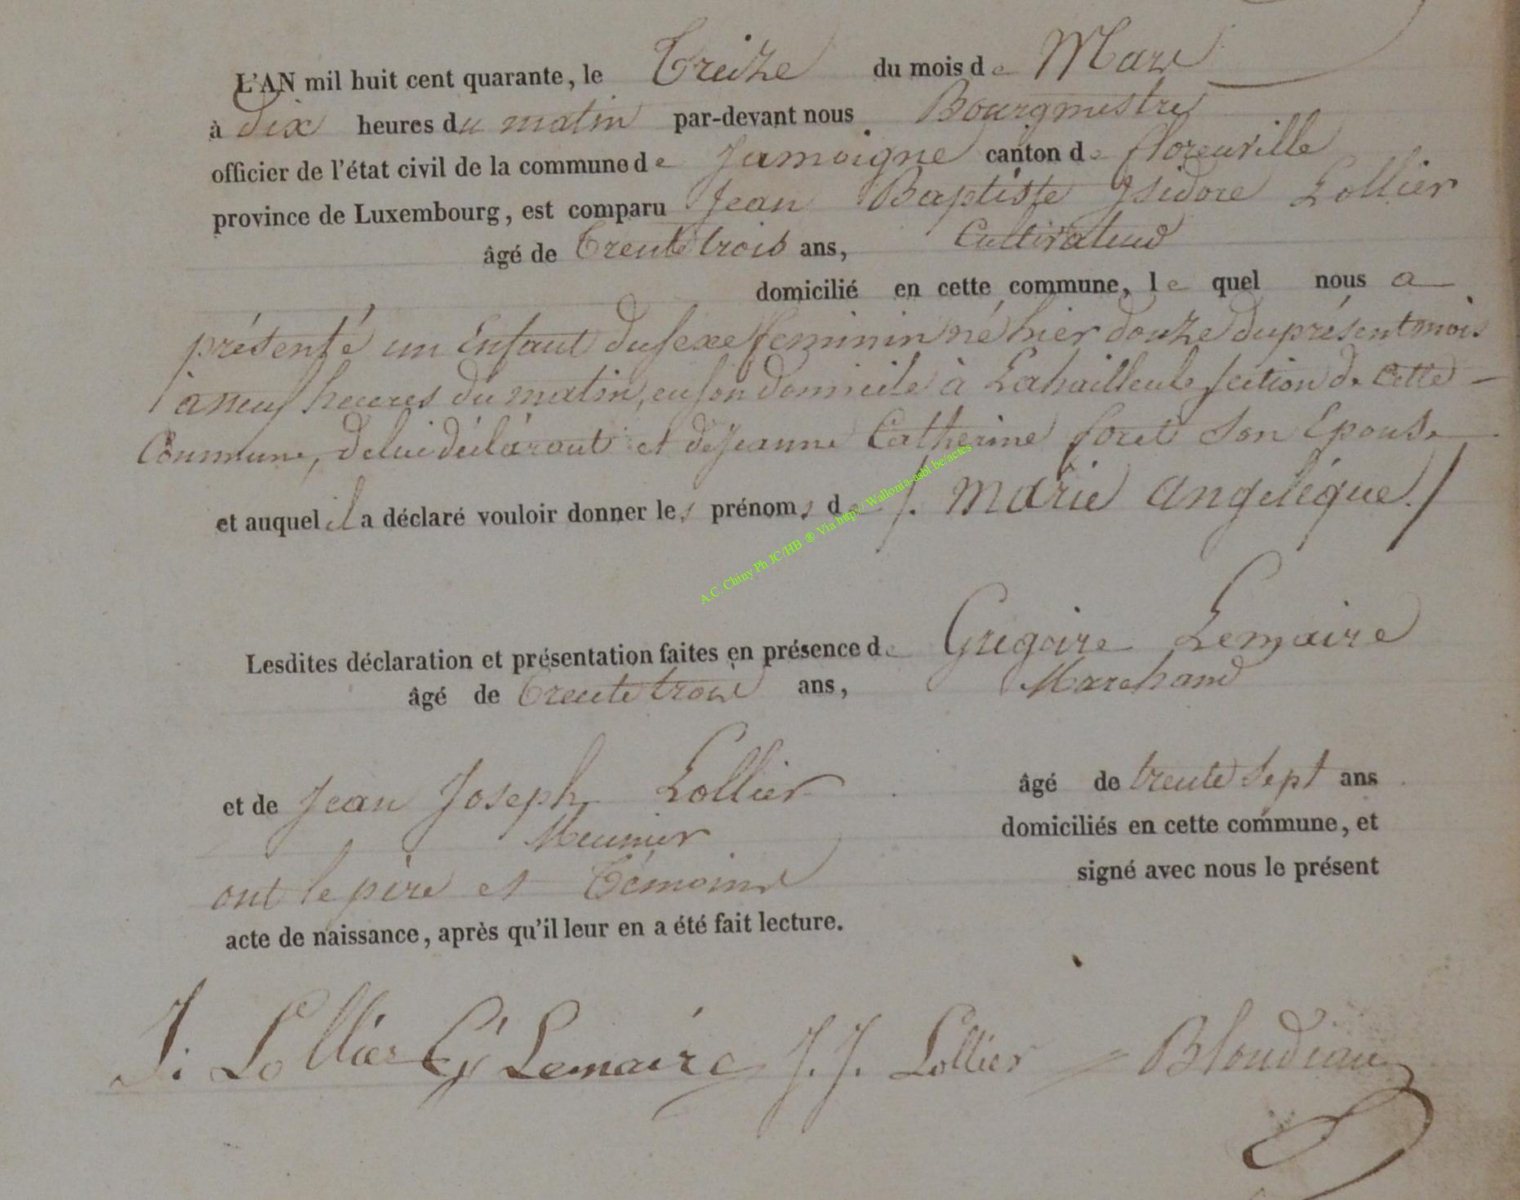 L'AN mil huit cent quarante, le Treize du mois de Mars
à dix heures du matin par-devant nous Bourgmestre
officier de l'état civil de la commune de Jamoigne canton de florenville
province de Luxembourg, est comparu Jean Baptiste Isidore Lollier
âgé de Trente trois ans, Cultivateur
domicilié en cette commune, le quel nous a
présenté un Enfant du sexe feminin né hier douze du présent mois
à neuf heures du matin, en son domicile à Lahailleule section de cette
Commune, de lui déclarant et de Jeanne Catherine foret son Epouse
et auquel il a déclaré vouloir donner les prénoms de /. Marie Angelique ./
A.C. Chiny Ph JC/HB ® Via http://Wallonia-asbl.be/actes
Lesdites déclaration et présentation faites en présence de Grégoire Lemaire
âgé de Trente trois ans, Marchand
et de Jean Joseph Lollier âgé de trente sept ans
Meunier domiciliés en cette commune, et
ont le père et Témoins signé avec nous le présent
acte de naissance, après qu'il leur en a été fait lecture.
J: Lollier G Lemaire J. J. Lollier Blondiau